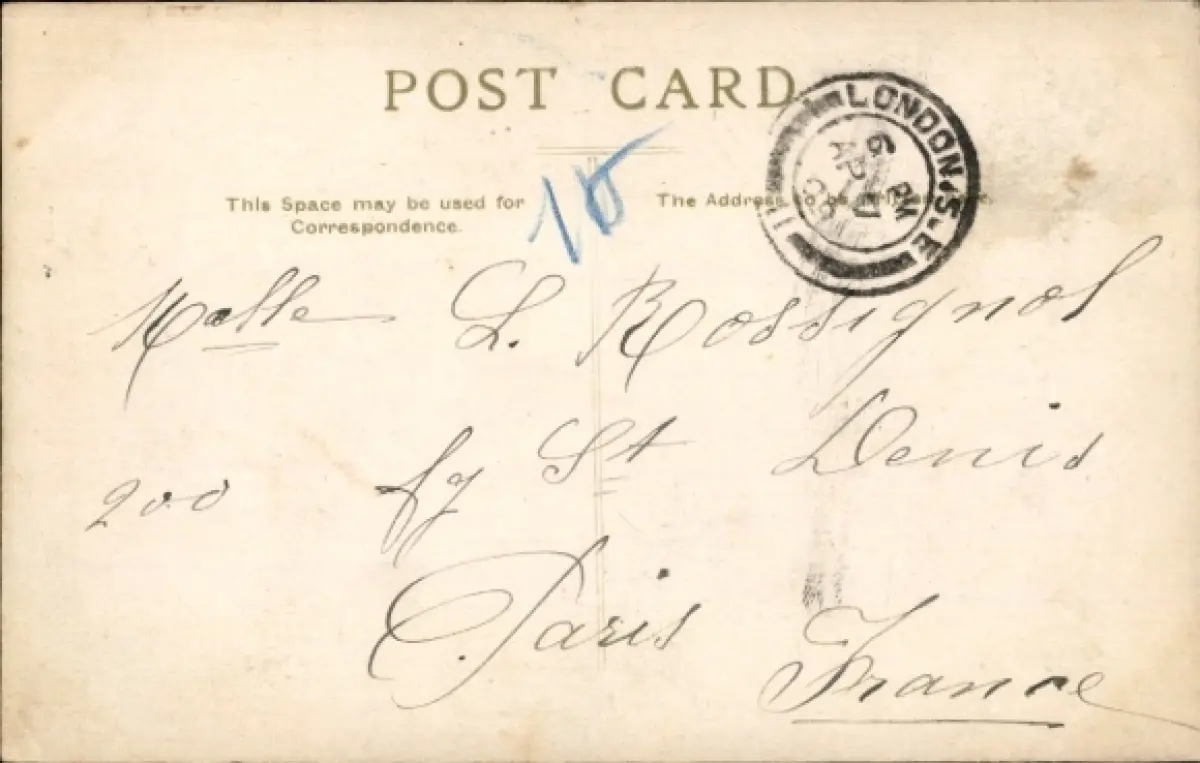 POST CARD
This Space may be used for
Correspondence.
The Address to be
10
LONDON. S.E
6 PM
AP
Melle L. Rossignol
200 fg St Denis
Paris
France